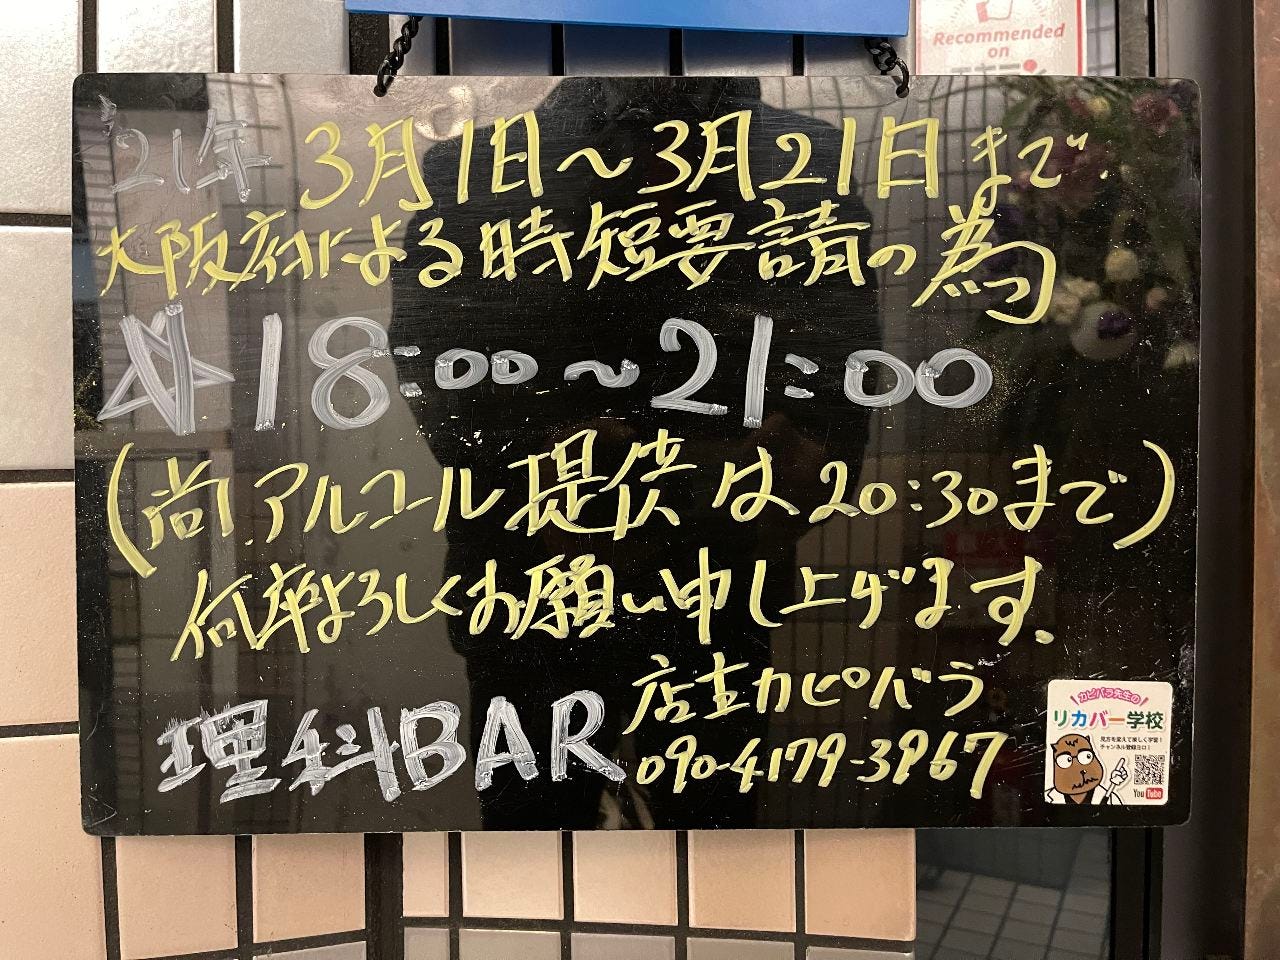 Recommended
on
'21年 3月1日〜3月21日まで
大阪府による時短要請の為
☆18:00〜21:00
(尚アルコール提供は20:30まで)
何卒よろしくお願い申し上げます.
理科BAR
店主カピバラ
090-4179-3967
カピバラ先生の
リカバー学校
見方を変えて楽しく学習!
チャンネル登録ヨロ!
YouTube